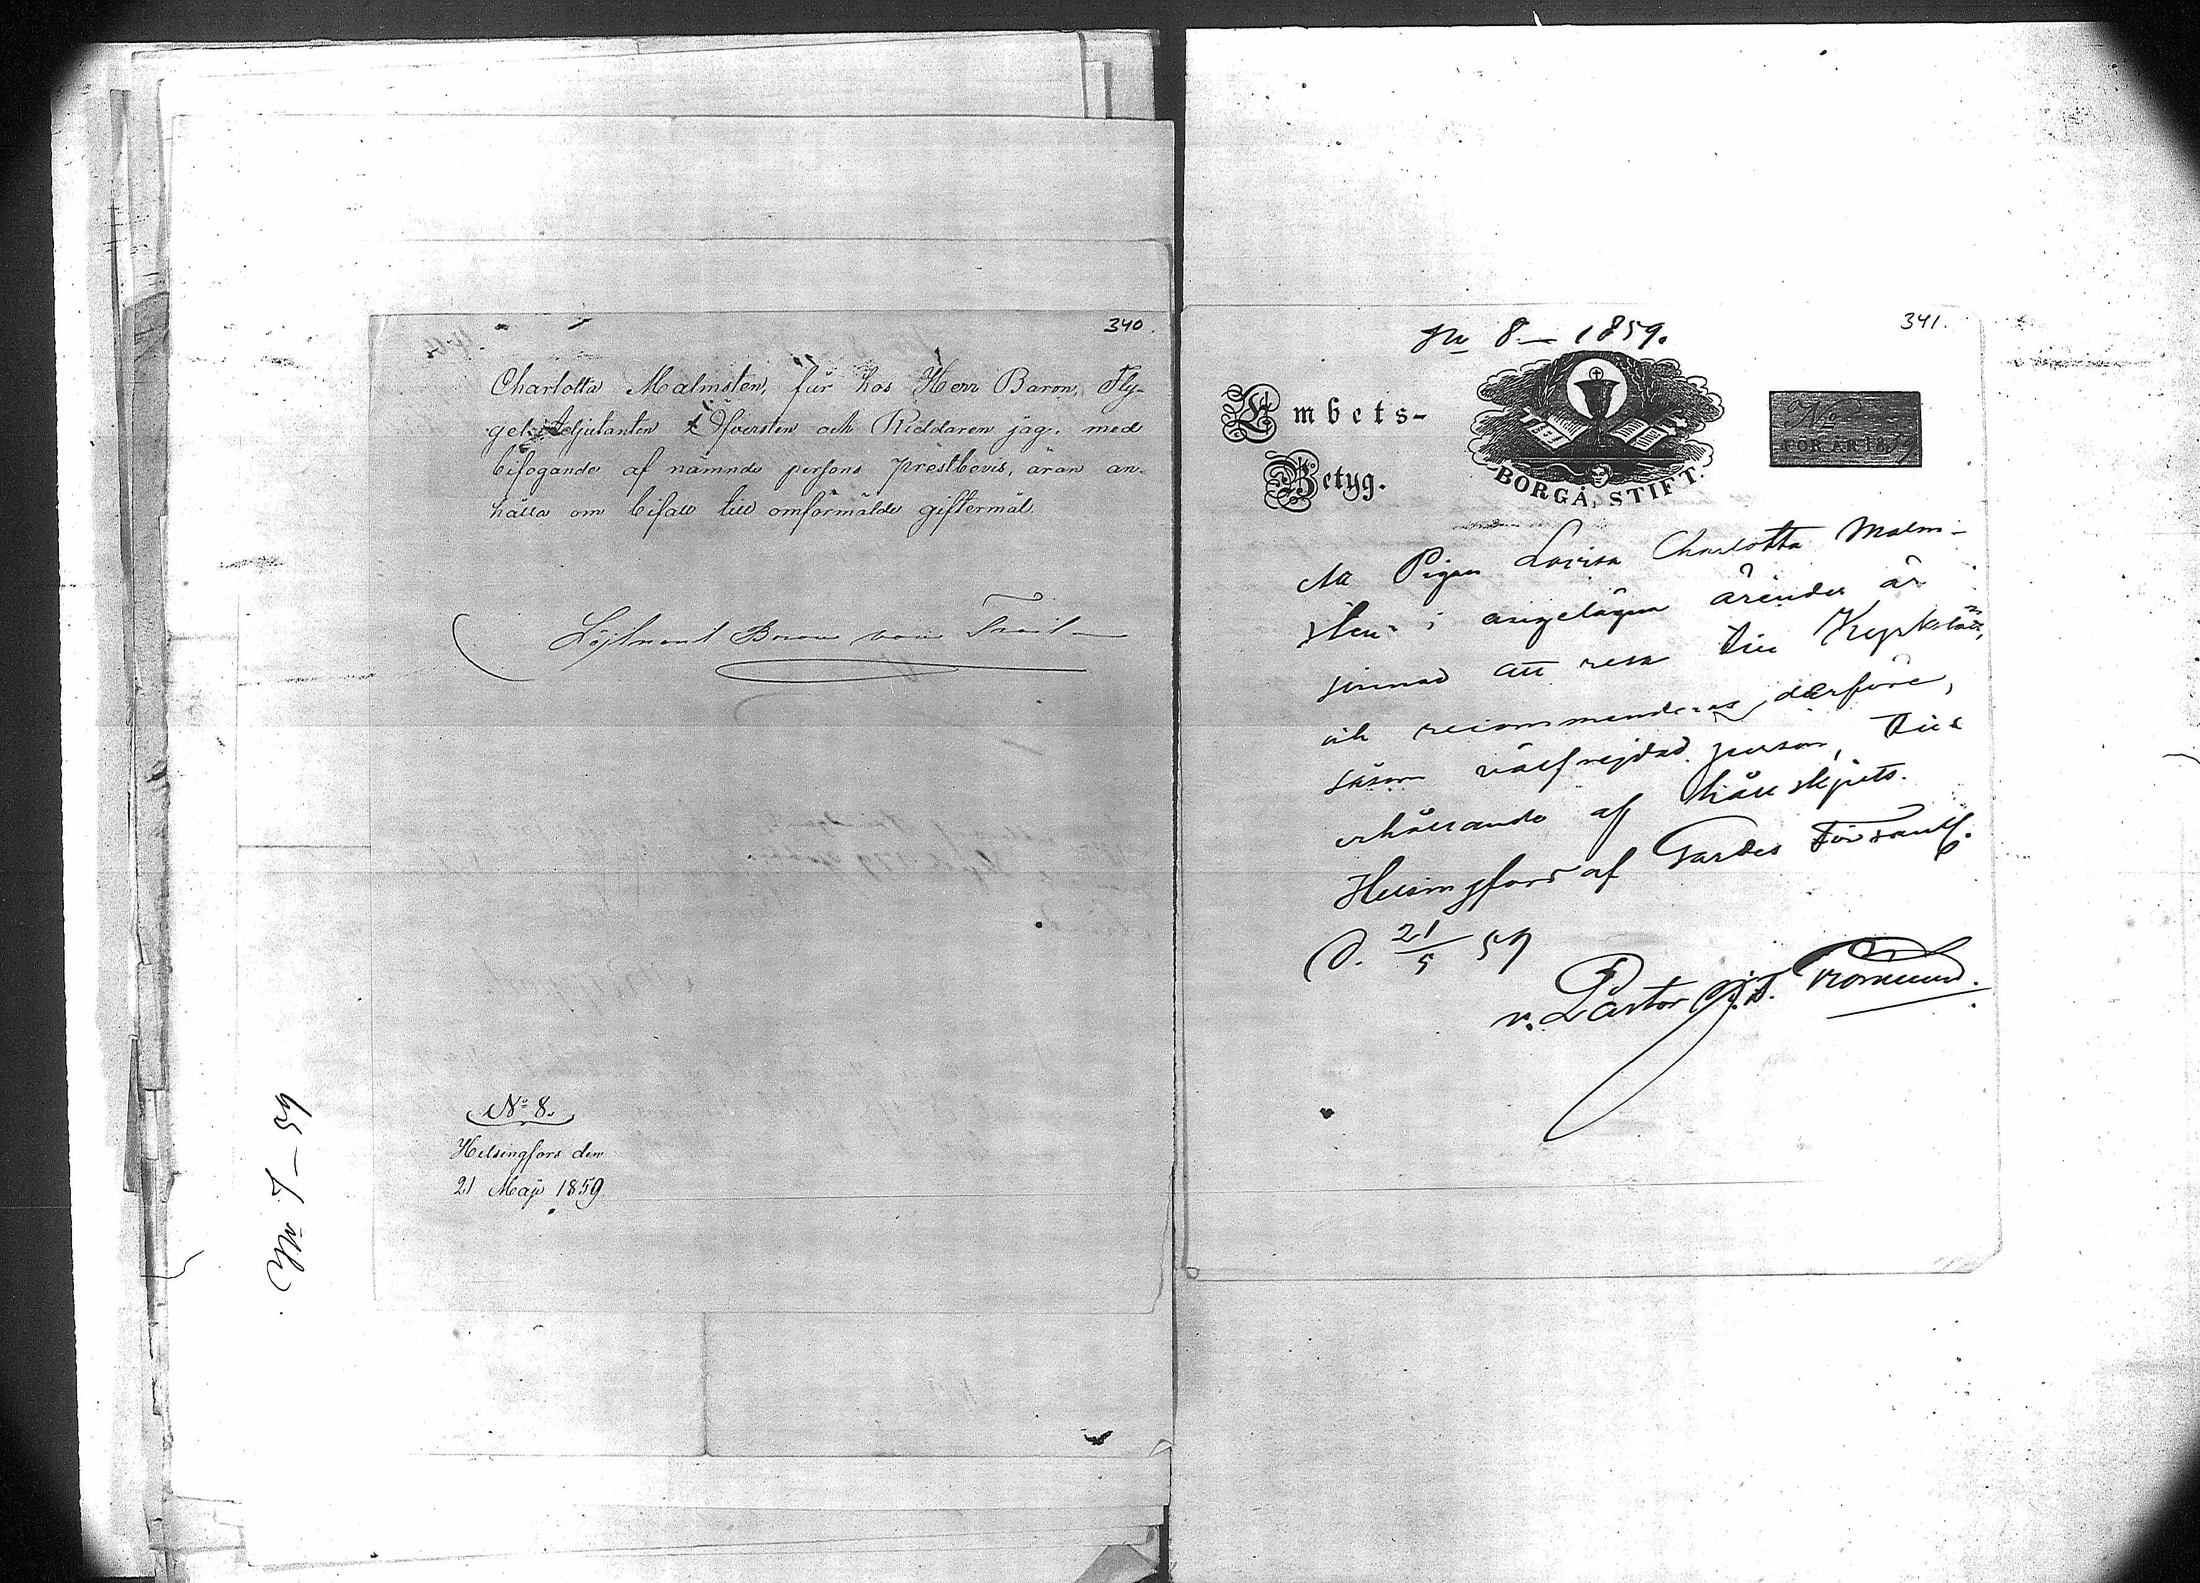 340.
Charlotta Malmsten, får hos Herr Baron, Fly-
gel-Adjutanten Öfversten och Riddaren jag, med
bifogande af nämnde persons prestbevis, äran an-
hålla om bifall till omförmälde giftermål.
Löjtnant Baron von Troil
No 8.
Helsingfors den
21 Maji 1859.
No 7 – 59
341.
No 8 – 1859.
Embets-
Betyg.
BORGÅ STIFT.
No
FÖR ÅR 1859
Att Pigan Lovisa Charlotta Malm-
sten i angelägna ärender är
sinnad att resa till Kyrkslätt,
och recommenderas derföre,
såsom välfrejdad person, till
erhållande af hållskjuts.
Helsingfors af Gardes Församl.
d. 21/5 59
v. Pastor